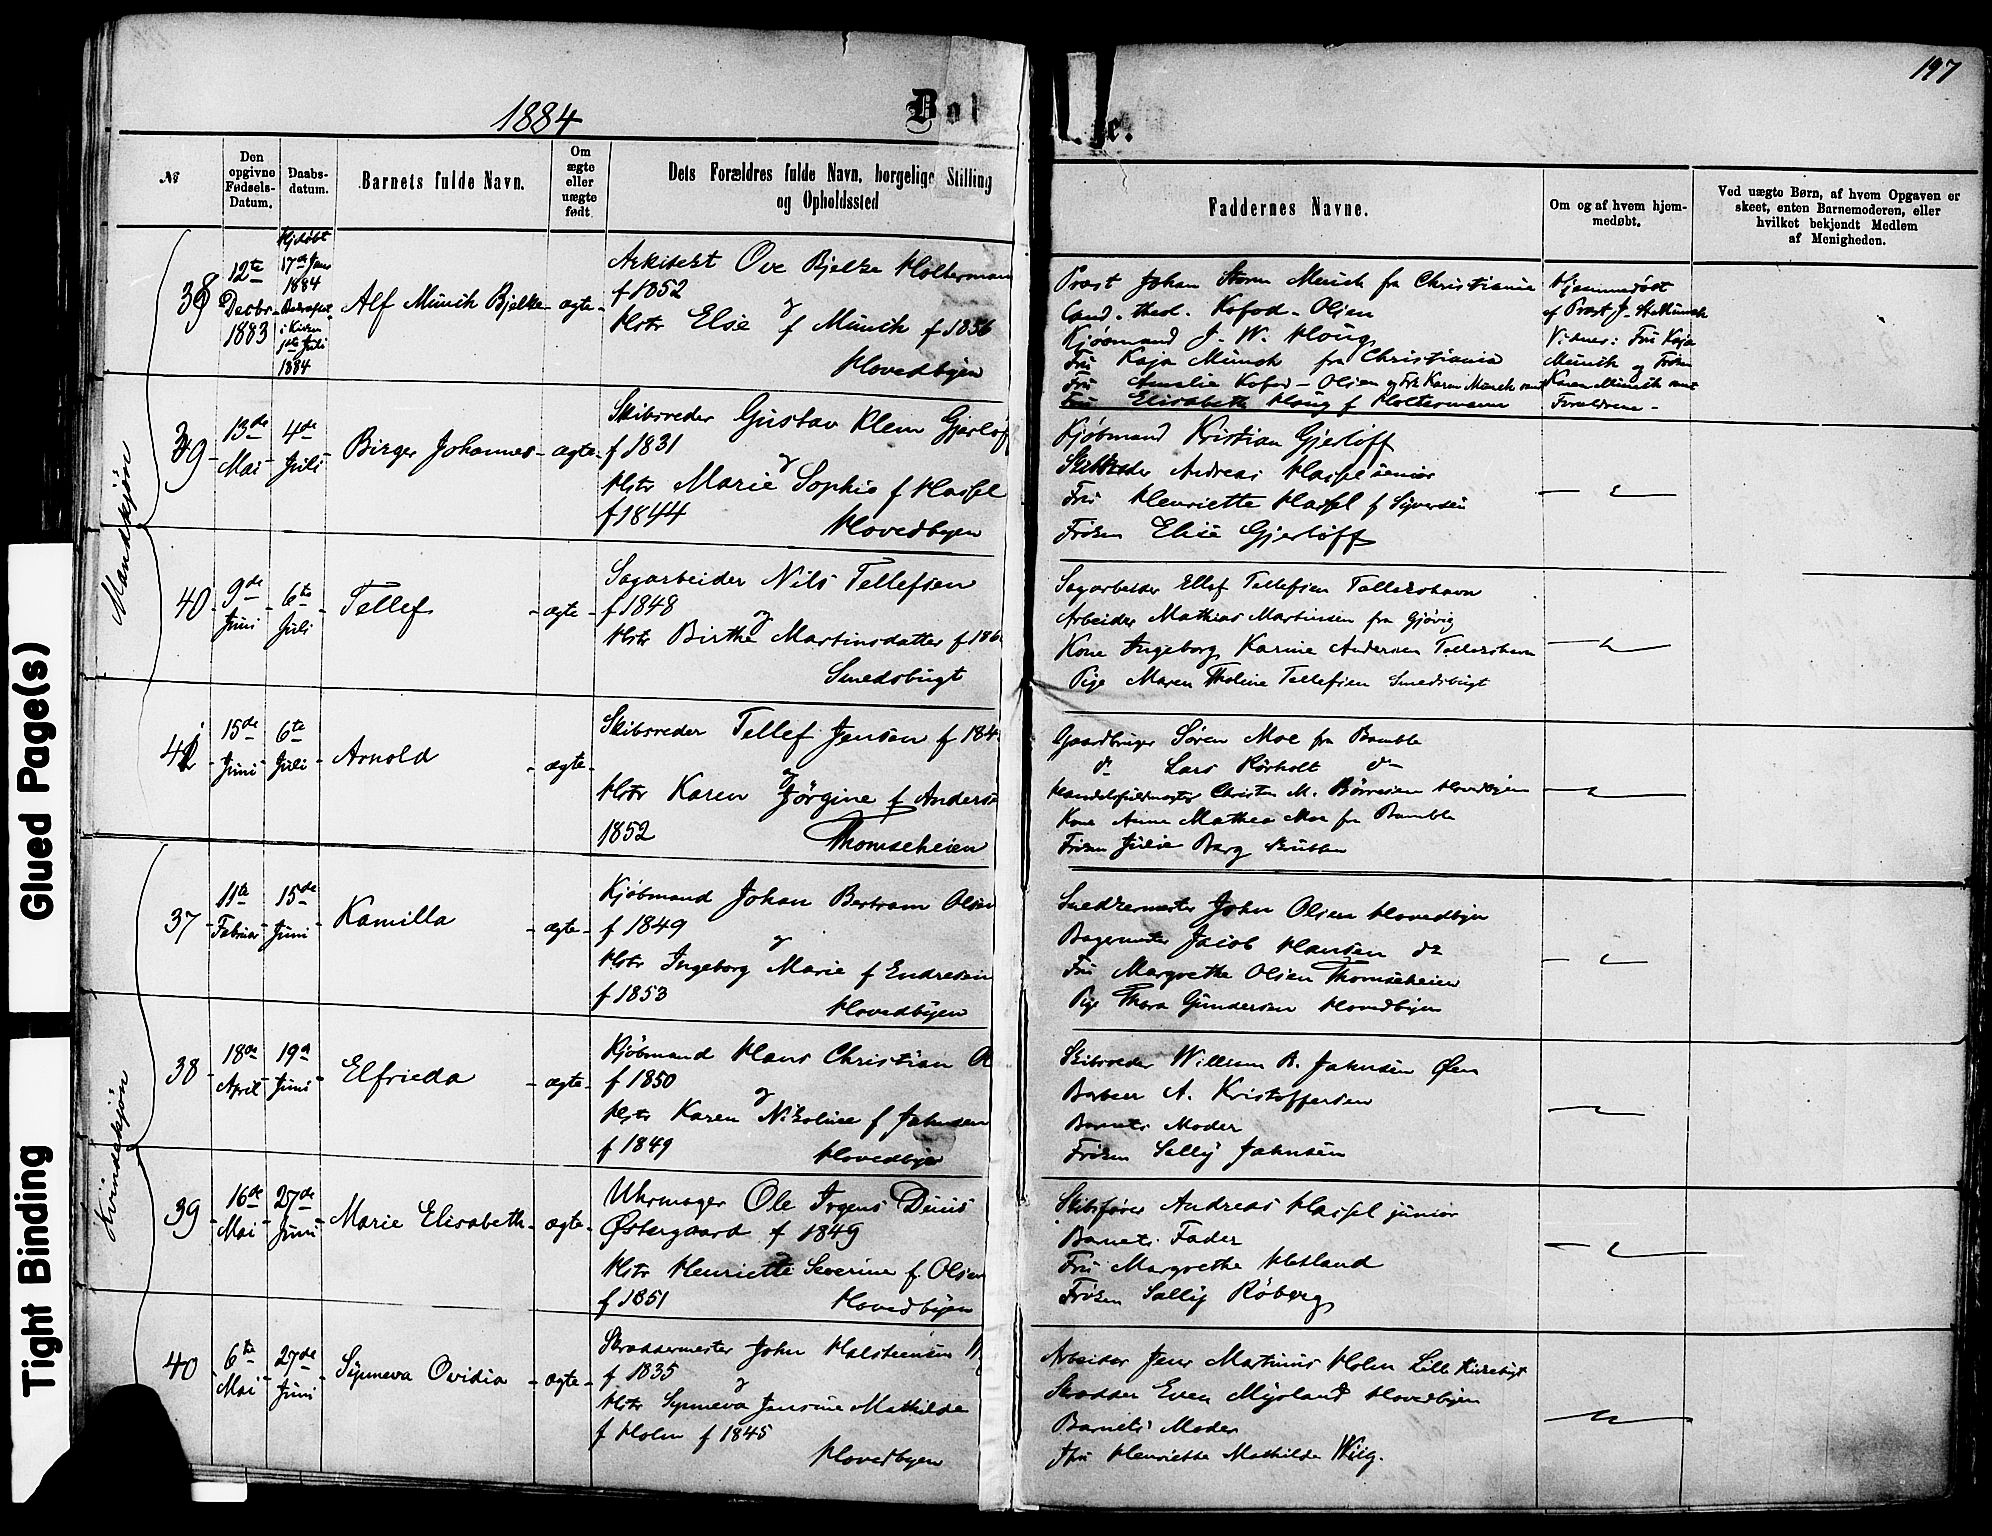 197
1884
Dø
e.
№
Den opgivne Fødsels-Datum.
Daabs-datum.
Barnets fulde Navn.
Om ægte eller uægte født
Dets Forældres fulde Navn, borgelige Stilling og Opholdssted
Faddernes Navne.
Om og af hvem hjem-medøbt.
Ved uægte Børn, af hvem Opgaven er skeet, enten Barnemoderen, eller hvilket bekjendt Medlem af Menigheden.
Mandskjøn
38
12te Decbr 1883
Hjdøbt 17de 1884
i Kirken Juli 1884
Alf Münch Bjelke
ægte
Arkitekt Ove Bjelke Holtermann
f 1852
og
Hstr Else f Münch f 1856
Hovedbyen
Prost Johan Storm Munch fr Christiania
Cand. theol. Kofod-Olsen
Kjøbmand J. W. Houg
Fru Kaja Münch fra Christiania
Fru Amalie Kofod-Olsen og Frk Karen Munch
Fru Elisabeth Houg f Holtermann
Hjemmedøbt
af Prost J. St. Münch
Vidner: Fru Kaja
Münch og Frøken
Karen Münch samt
Forældrene
39
13de Mai
4de Juli
Birger Johannes
ægte
Skibsreder Gustav Klem Gjerløf
f 1831
og
Hstr Marie Sophie f Hassel
f 1844 Hovedbyen
Kjøbmand Kristian Gjerløff
Skibsreder Andreas Hassel senior
Fru Henriette Hassel f Syversen
Frøken Elise Gjerløff
40
9de Juni
6te Juli
Tellef
ægte
Sagarbeider Nils Tellefsen
f 1848
og
Hstr Birthe Martinsdatter f 186
Smedsbugt
Sagarbeider Ellef Tellefsen Tallakshavn
Arbeider Mathias Martinsen fra Gjøvig
Kone Ingeborg Karine Andersen Tallakshavn
Pige Maren Tholine Tellefsen Smedsbugt
41
15de Juni
6te Juli
Arnold
ægte
Skibsreder Tellef Jensen f 184
og
Hstr Karen Jørgine f Anders
1852 Thomseheien
Gaardbruger Søren Moe fra Bamble
do Lars Rørholt do
Handelsfuldmægtig Christen M. Børresen Hovedbyen
Kone Anne Mathea Moe fra Bamble
Frøken Julie Berg Skrubben
Kvindekjøn
37
11te Februar
15de Juni
Kamilla
ægte
Kjøbmand Johan Bertram Olsen
f 1849
og
Hstr Ingeborg Marie f Endresen
f 1853 Hovedbyen
Snedkermester John Olsen Hovedbyen
Bagermester Jacob Hansen do
Fru Margrethe Olsen Thomseheien
Pige Thora Gundersen Hovedbyen
38
18de April
19de Juni
Elfrieda
ægte
Kjøbmand Hans Christian
f 1850
og
Hstr Karen Nikoline f Jahnsen
f 1849 Hovedbyen
Skibsreder Willum B. Jahnsen Øen
Barbeer A. Kristoffersen
Barnets Moder
Frøken Sally Jahnsen
39
16de Mai
27de Juni
Marie Elisabeth
ægte
Uhrmager Ole Irgens Dinis
Østergaard f 1849
Hstr Henriette Severine f. Olsen
f 1851 Hovedbyen
Skibsfører Andreas Hassel junior
Barnets Fader
Fru Margrethe Hetland
Frøken Sally Röberg
40
6te Mai
27de Juni
Synneva Ovidia
ægte
Skræddermester John Halsteensen
f 1835
og
Hstr Synneva Jensine Mathilde
f Holm f 1845
Hovedbyen
Arbeider Jens Martinus Holm Lille Kirkebugt
Skrædder Even Myrland Hovedbyen
Barnets Moder
Fru Henriette Mathilde Wiig.
Glued Page(s)
Tight Binding